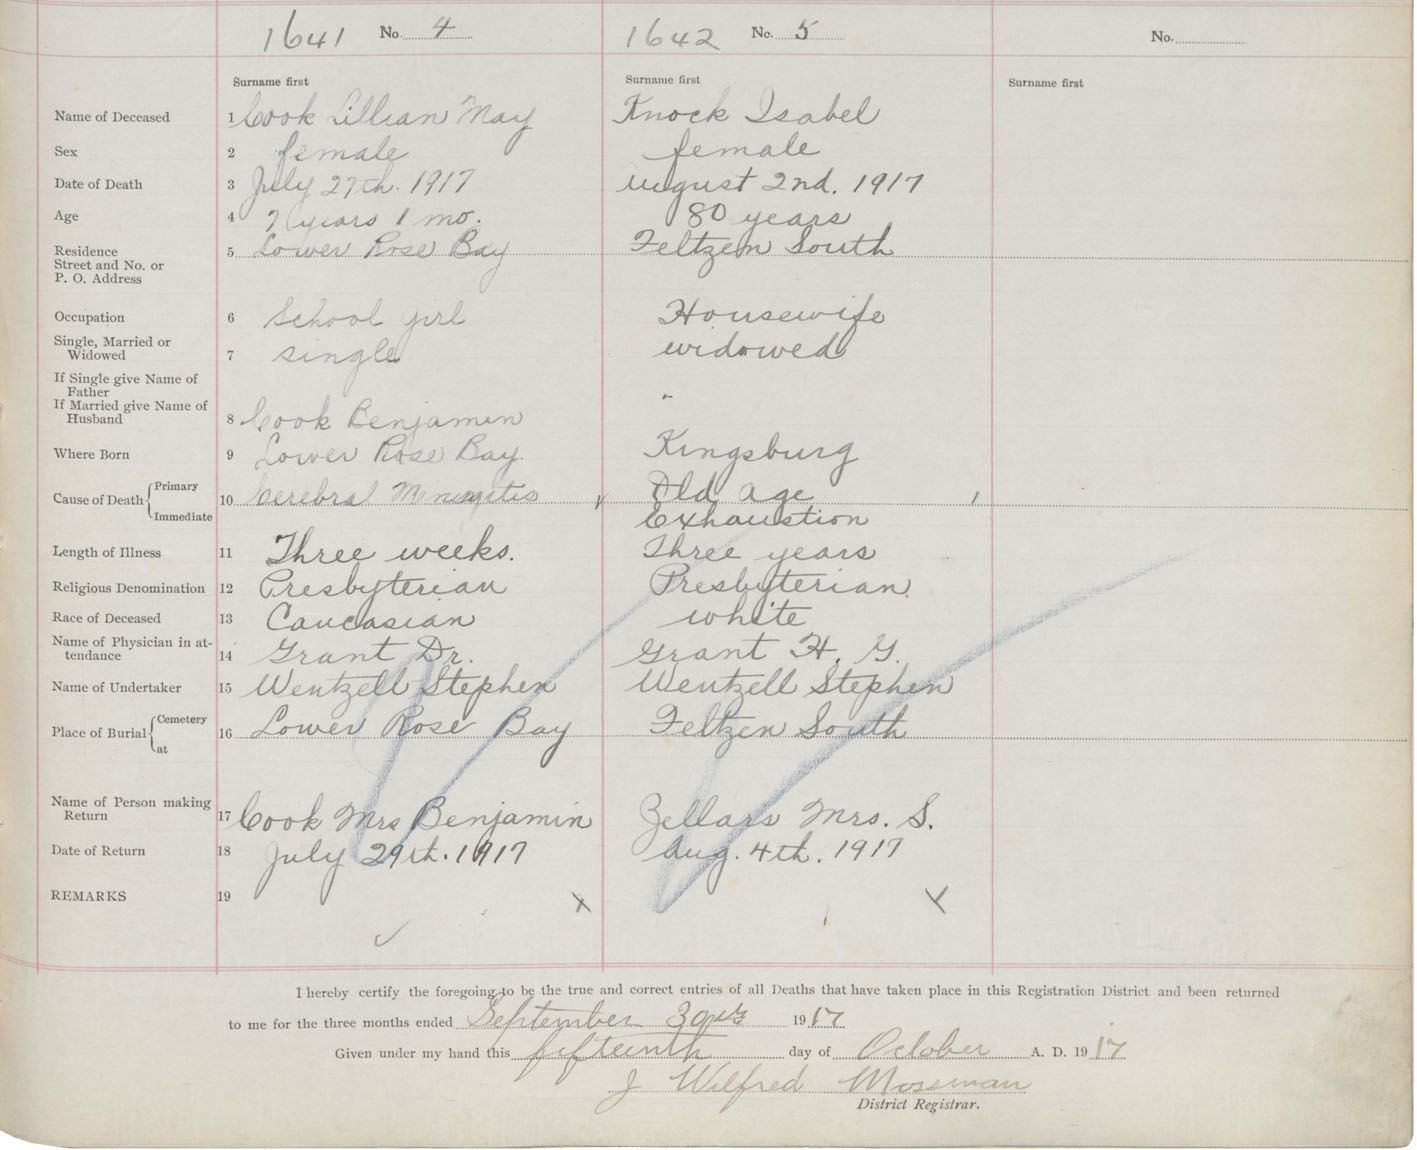 1641 No. 4 1642 No. 5 No.
Surname first Surname first Surname first
Name of Deceased 1 Cook Lillian May Knock Isabel
Sex 2 female female
Date of Death 3 July 27th. 1917 August 2nd. 1917
Age 4 7 years 1 mo. 80 years
Residence 5 Lower Rose Bay Feltzen South
Street and No. or
P. O. Address
Occupation 6 School girl Housewife
Single, Married or
Widowed 7 single widowed
If Single give Name of
Father
If Married give Name of
Husband 8 Cook Benjamin -
Where Born 9 Lower Rose Bay. Kingsburg
Cause of Death { Primary 10 Cerebral Meningitis Old age
Immediate Exhaustion
Length of Illness 11 Three weeks. Three years
Religious Denomination 12 Presbyterian Presbyterian.
Race of Deceased 13 Caucasian white
Name of Physician in at-
tendance 14 Grant Dr. Grant H. G.
Name of Undertaker 15 Wentzell Stephen Wentzell Stephen
Place of Burial { Cemetery 16 Lower Rose Bay Feltzen South
at
Name of Person making
Return 17 Cook Mrs Benjamin Zellars Mrs. S.
Date of Return 18 July 29th. 1917 Aug. 4th. 1917
REMARKS 19
I hereby certify the foregoing to be the true and correct entries of all Deaths that have taken place in this Registration District and been returned
to me for the three months ended September 30th 1917
Given under my hand this fifteenth day of October A. D. 1917
J Wilfred Mossman
District Registrar.